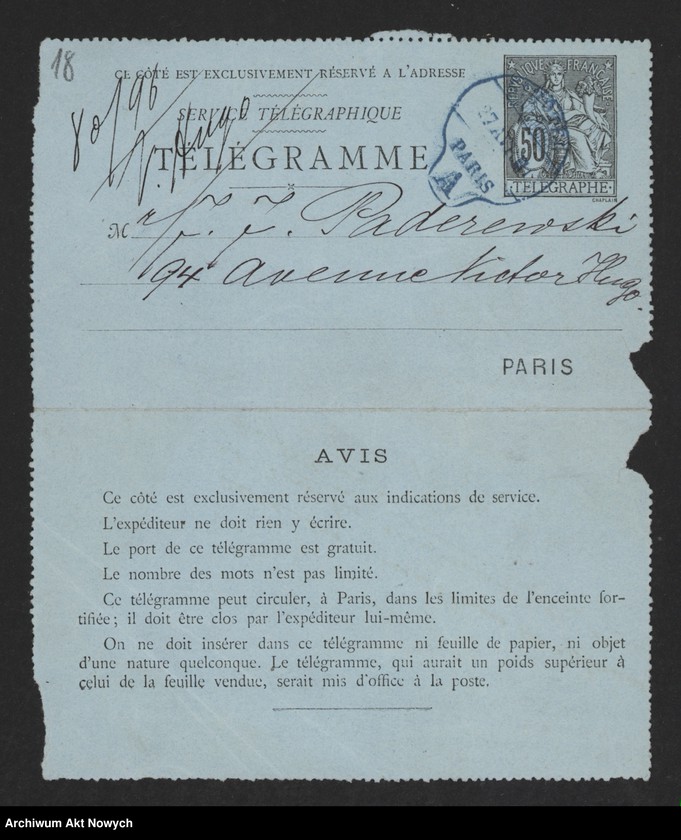 18
CE CÔTÉ EST EXCLUSIVEMENT RÉSERVÉ A L'ADRESSE
SERVICE TÉLÉGRAPHIQUE
TÉLÉGRAMME
80/96
V. Hugo
RÉPUBLIQUE FRANÇAISE
50
TÉLÉGRAPHE
CHAPLAIN
PARIS
27
A
M. J. J. Paderewski
94 Avenue Victor Hugo.
PARIS
AVIS
Ce côté est exclusivement réservé aux indications de service.
L'expéditeur ne doit rien y écrire.
Le port de ce télégramme est gratuit.
Le nombre des mots n'est pas limité.
Ce télégramme peut circuler, à Paris, dans les limites de l'enceinte for-
tifiée; il doit être clos par l'expéditeur lui-même.
On ne doit insérer dans ce télégramme ni feuille de papier, ni objet
d'une nature quelconque. Le télégramme, qui aurait un poids supérieur à
celui de la feuille vendue, serait mis d'office à la poste.
Archiwum Akt Nowych